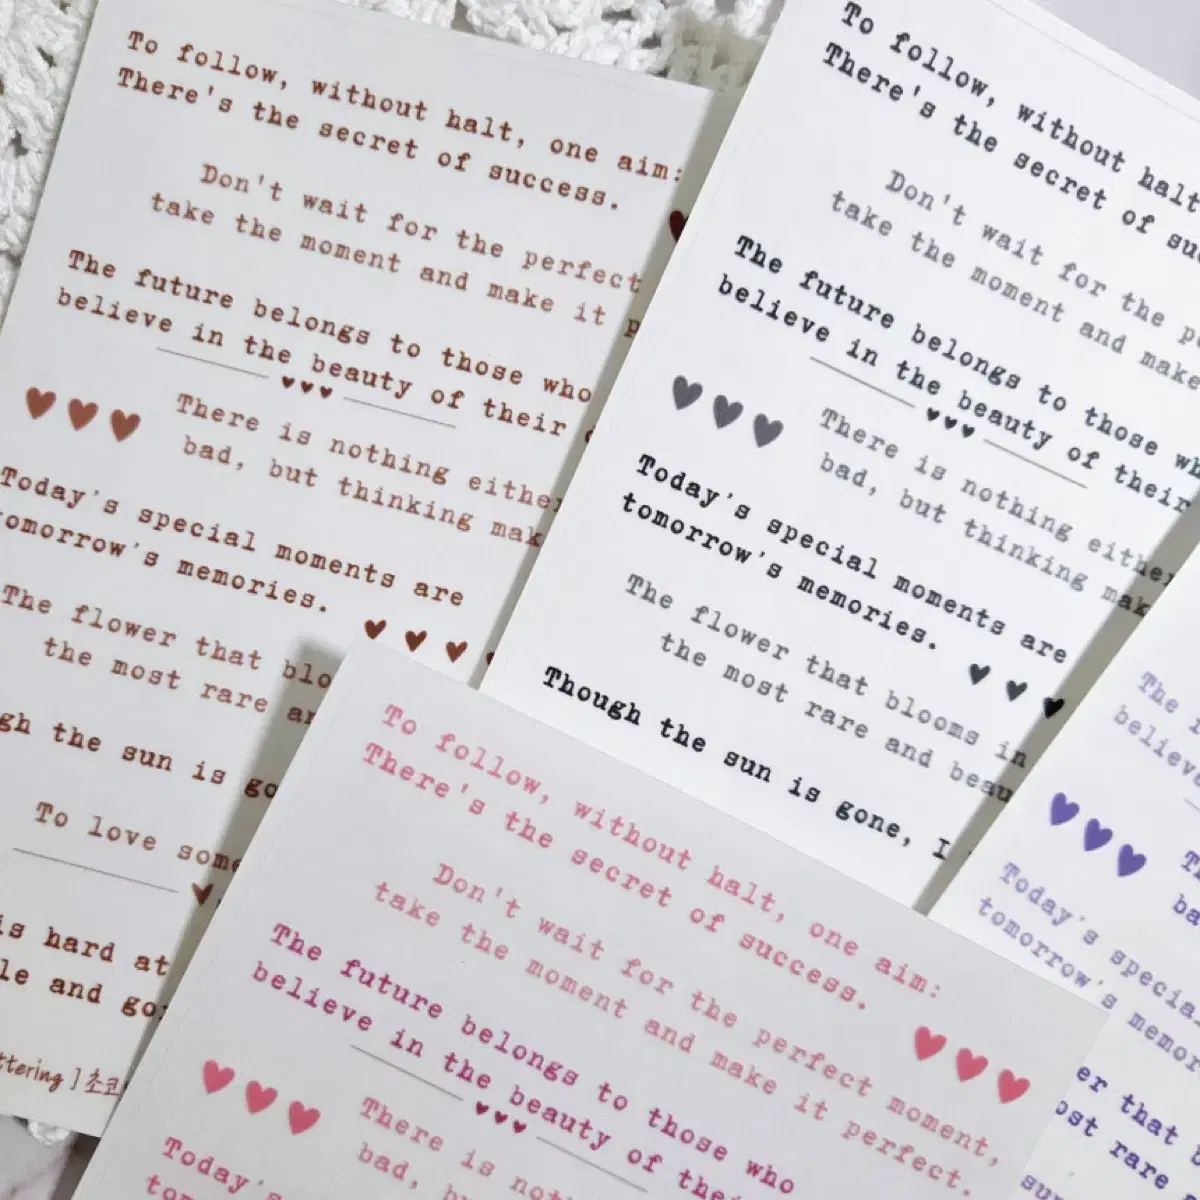 To follow, without halt, one aim:
There's the secret of success.
Don't wait for the perfect
take the moment and make it
The future belongs to those who
believe in the beauty of their
There is nothing either
bad, but thinking mak
Today's special moments are
tomorrow's memories.
The flower that bloo
the most rare an
gh the sun is go
To love some
is hard at
le and go
ttering ] 초코
To follow, without halt
There's the secret of suc
Don't wait for the pe
take the moment and make
The future belongs to those wh
believe in the beauty of their
There is nothing either
bad, but thinking mak
Today's special moments are
tomorrow's memories.
The flower that blooms in
the most rare and beau
Though the sun is gone, I
To follow, without halt, one aim:
There's the secret of success.
Don't wait for the perfect moment,
take the moment and make it perfect.
The future belongs to those who
believe in the beauty of thei
There is not
bad, bu
Today's
tom
The f
believ
Th
ba
Today's special
tomorrow's memor
er that b
ost rare
sun